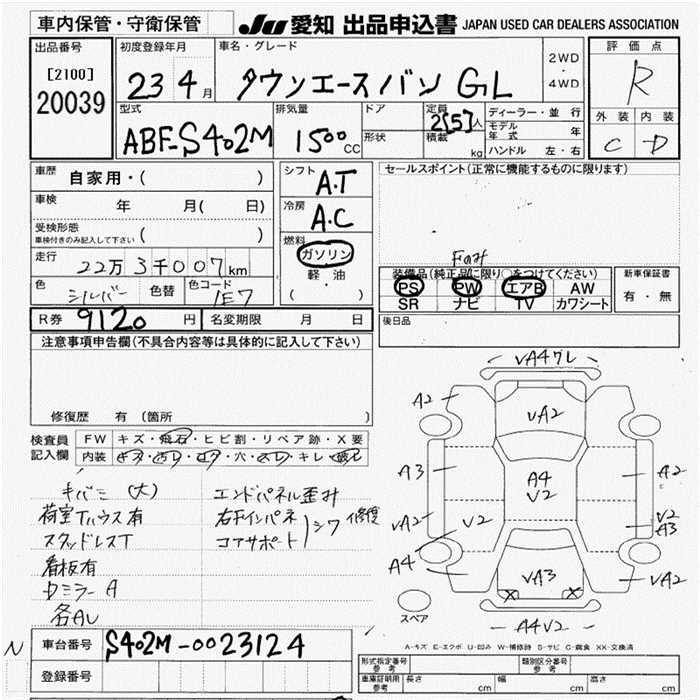 車内保管・守衛保管
JU 愛知 出品申込書 JAPAN USED CAR DEALERS ASSOCIATION
出品番号
[2100]
20039
初度登録年月
23 4月
車名・グレード
タウンエースバン GL
2WD
・
4WD
評価点
R
外装 内装
C D
型式
ABF-S402M
排気量
1500cc
ドア
形状
定員
2[5]人
積載
kg
ディーラー・並行
モデル年式 年
ハンドル 左・右
車歴
自家用・( )
車検 年 月( 日)
受検形態
車検付きのみ記入して下さい ( )
走行
22万3千007km
色
シルバー
色替
色コード
1E7
シフト
A.T
冷房
A.C
燃料
ガソリン
軽・油
( )
セールスポイント(正常に機能するものに限ります)
Fのみ
装備品(純正品に限り○をつけてください)
PS PW エアB AW
SR ナビ TV カワシート
新車保証書
有・無
R券 9120円
名変期限 月 日
後日品
注意事項申告欄(不具合内容等は具体的に記入して下さい)
修復歴 有 (箇所 )
検査員記入欄
FW キズ・飛石・ヒビ割・リペア跡・X要
内装 キズ・汚レ・コゲ・穴・スレ・キレ・破レ
キバミ (大)
荷室Tハウス有
スタッドレスT
看板有
DミラーA
各AU
エンドパネル歪み
右Fインパネ
コアサポート
シワ 修復
VA4グレ
A2
VA2
A3
A4
V2
A2
VA2
V2
V2
A3
A4
VA3
X X
VA2
スペア
A4V2
A-キズ E-エクボ U-凹み W-補修跡 S-サビ C-腐食 XX-交換済
N
車台番号 S402M-0023124
登録番号
形式指定番号
参考
類別区分番号
参考
車庫証明用
参考
長さ cm 幅 cm 高さ cm